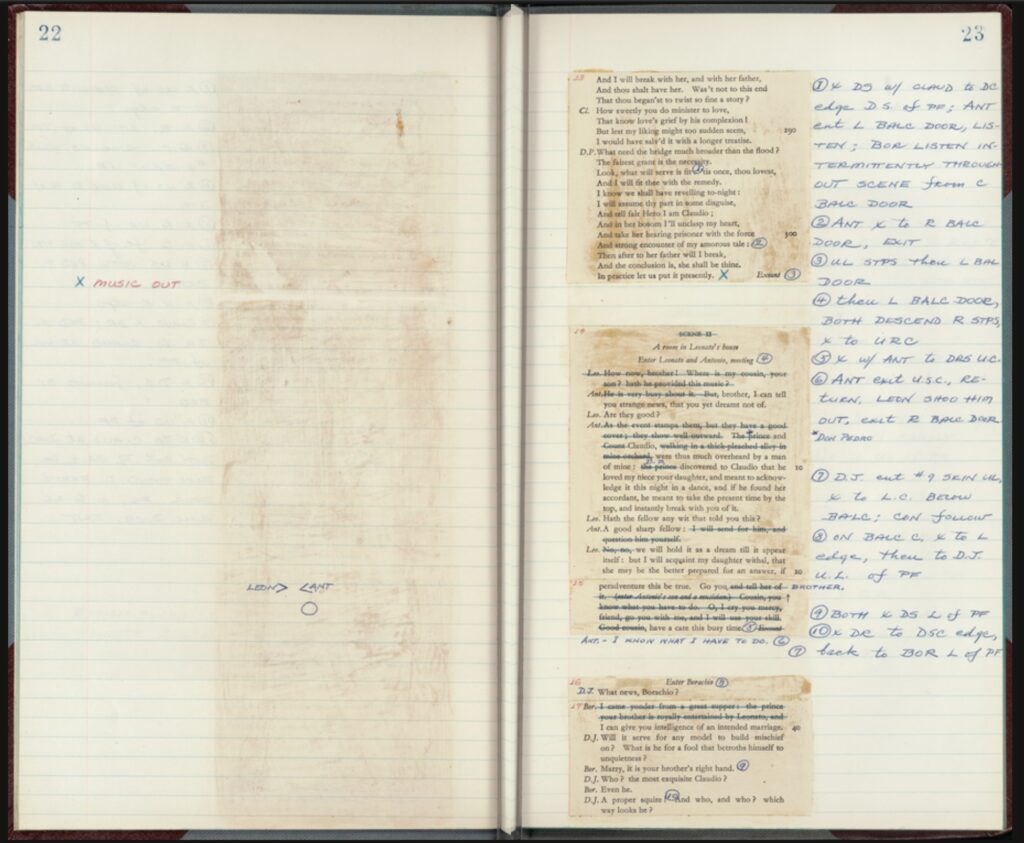 22
X MUSIC OUT
LEON> <ANT
23
23
And I will break with her, and with her father,
And thou shalt have her. Was't not to this end
That thou began'st to twist so fine a story?
Cl. How sweetly you do minister to love,
That know love's grief by his complexion!
But lest my liking might too sudden seem, 290
I would have salv'd it with a longer treatise.
D.P. What need the bridge much broader than the flood?
The fairest grant is the necessity.
Look, what will serve is fit: 'tis once, thou lovest,
And I will fit thee with the remedy.
I know we shall have revelling to-night:
I will assume thy part in some disguise,
And tell fair Hero I am Claudio;
And in her bosom I'll unclasp my heart,
And take her hearing prisoner with the force 300
And strong encounter of my amorous tale: 2
Then after to her father will I break,
And the conclusion is, she shall be thine.
In practice let us put it presently. X Exeunt 3
SCENE II
A room in Leonato's house
Enter Leonato and Antonio, meeting 4
Leo. How now, brother! Where is my cousin, your
son? hath he provided this music?
Ant. He is very busy about it. But, brother, I can tell
you strange news, that you yet dreamt not of.
Leo. Are they good?
Ant. As the event stamps them, but they have a good
cover; they show well outward. The prince and
Count Claudio, walking in a thick-pleached alley in
mine orchard, were thus much overheard by a man
of mine: the prince discovered to Claudio that he 10
loved my niece your daughter, and meant to acknow-
ledge it this night in a dance, and if he found her
accordant, he meant to take the present time by the
top, and instantly break with you of it.
Leo. Hath the fellow any wit that told you this?
Ant. A good sharp fellow: I will send for him, and
question him yourself.
Leo. No, no, we will hold it as a dream till it appear
itself: but I will acquaint my daughter withal, that
she may be the better prepared for an answer, if 20
15
peradventure this be true. Go you and tell her of - BROTHER.
it. (enter Antonio's son and a musician) Cousin, you
know what you have to do. O, I cry you mercy,
friend, go you with me, and I will use your skill.
Good cousin, have a care this busy time. 5 Exeunt
ANT. - I KNOW WHAT I HAVE TO DO. 6
7
16 Enter Borachio 8
D.J. What news, Borachio?
17 Bor. I came yonder from a great supper: the prince
your brother is royally entertained by Leonato, and
I can give you intelligence of an intended marriage. 40
D.J. Will it serve for any model to build mischief
on? What is he for a fool that betroths himself to
unquietness?
Bor. Marry, it is your brother's right hand. 9
D.J. Who? the most exquisite Claudio?
Bor. Even he.
D.J. A proper squire! 10 And who, and who? which
way looks he?
1 X DS w/ CLAUD to DC
edge D.S. of PF; ANT
ent L BALC DOOR, LIS-
TEN; BOR LISTEN IN-
TERMITTENTLY THROUGH-
OUT SCENE from C
BALC DOOR
2 ANT X to R BALC
DOOR, EXIT
3 UL STPS then L BAL
DOOR
4 then L BALC DOOR,
BOTH DESCEND R STPS,
X to URC
5 X w/ ANT to DRS U.C.
6 ANT exit U.S.C., RE-
TURN, LEON SHOO HIM
OUT, exit R BALC DOOR
*DON PEDRO
7 D.J. ent #9 SKIN UL,
X to L.C. BELOW
BALC; CON follow
8 ON BALC C, X to L
edge, then to D.J.
U.L. of PF
9 BOTH X DS L of PF
10 X DR to DSC edge,
back to BOR L of PF